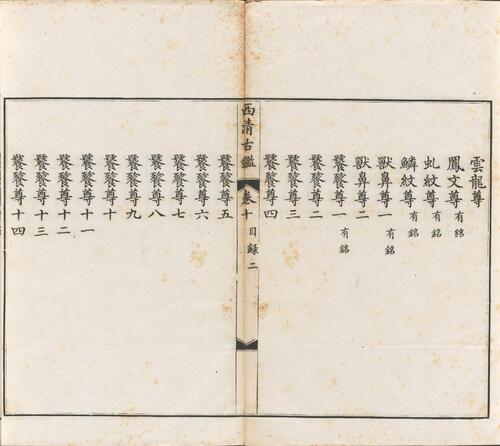 雲龍尊
鳳文尊有銘
虬紋尊有銘
鱗紋尊有銘
獸鼻尊一有銘
獸鼻尊二
饕餮尊一有銘
饕餮尊二
饕餮尊三
饕餮尊四
西清古鑑 卷十 目錄 二
饕餮尊五
饕餮尊六
饕餮尊七
饕餮尊八
饕餮尊九
饕餮尊十
饕餮尊十一
饕餮尊十二
饕餮尊十三
饕餮尊十四